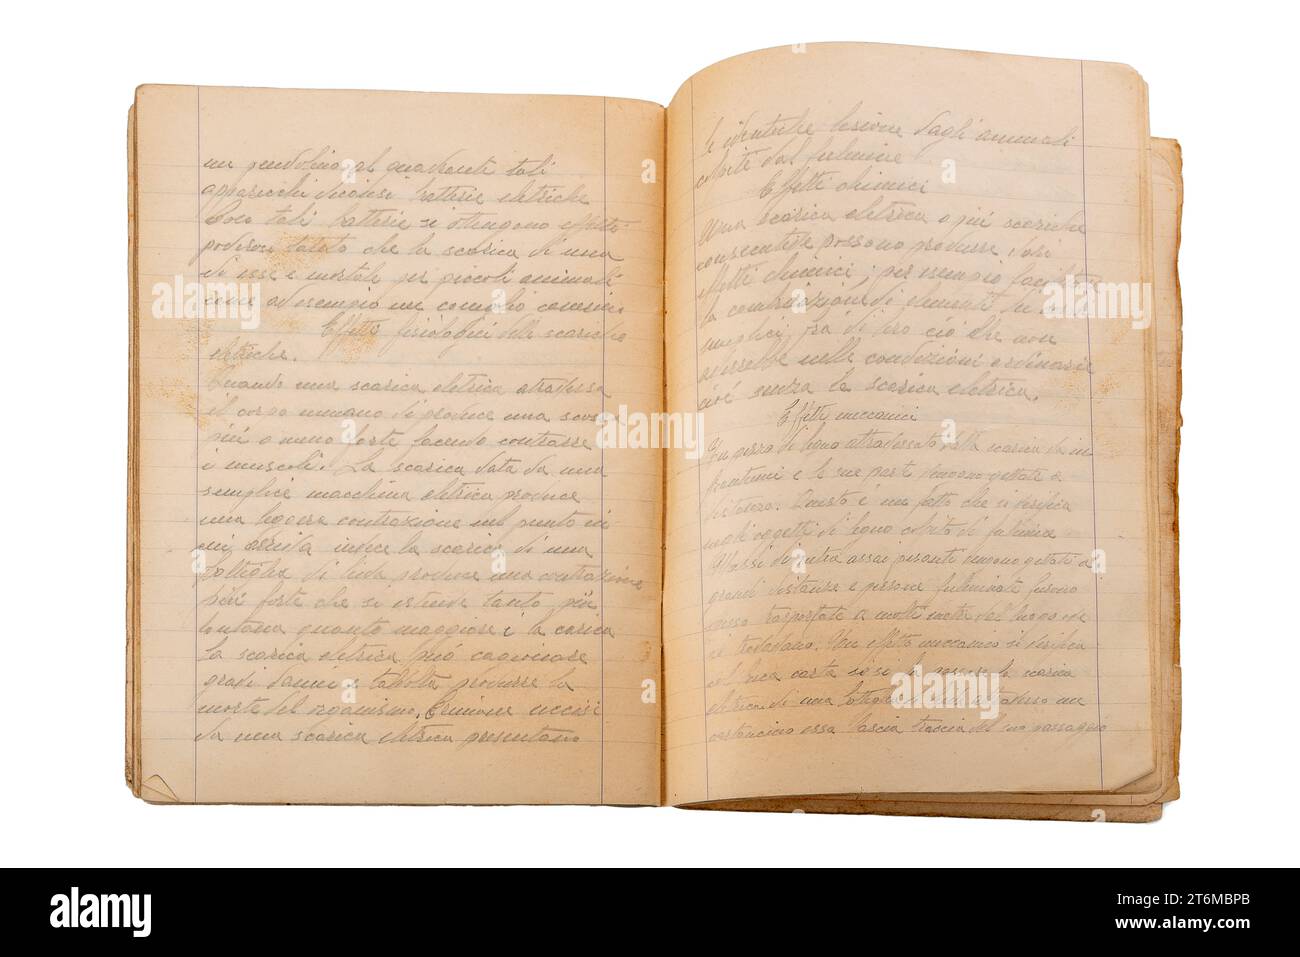 un pendolino al quadrante tali
apparecchi diconsi batterie elettriche
Con tali batterie si ottengono effetti
poderosi tanto che la scarica di una
di esse è mortale per piccoli animali
come ad esempio un coniglio
Effetti fisiologici delle scariche
elettriche.
Quando una scarica elettrica attraversa
il corpo umano si produce una scossa
più o meno forte facendo contrarre
i muscoli. La scarica data da una
semplice macchina elettrica produce
una leggera contrazione nel punto in
cui invece la scarica di una
bottiglia di Leida produce una contrazione
più forte che si estende tanto più
lontana quanto maggiore è la carica
La scarica elettrica può cagionare
gravi danni e talvolta produrre la
morte del organismo. Persone uccisi
da una scarica elettrica presentano
le identiche lesione dagli animali
colpite dal fulmine
Effetti chimici
Una scarica elettrica o più scariche
consecutive possono produrre dei
effetti chimici; per esempio facilitare
la combinazione di elementi
semplici, ciò che non
avverrebbe nelle condizioni ordinarie
cioè senza la scarica elettrica.
Effetti meccanici
Un pezzo di legno attraversato dalla scarica va in
frantumi e le sue parti vengono gettate a
distanza. Questo è un fatto che si verifica
negli oggetti di legno colpito di fulmine
Massi di pietra assai pesanti vengono gettati a
grandi distanze e persone fulminate furono
spesso trasportate a molti metri del luogo ove
si trovavano. Un effetto meccanico si verifica
si fa passare la scarica
elettrica di una bottiglia di Leida attraverso un
cartoncino essa lascia traccia del suo passaggio
alamy
Image ID: 2T6MBPB
www.alamy.com